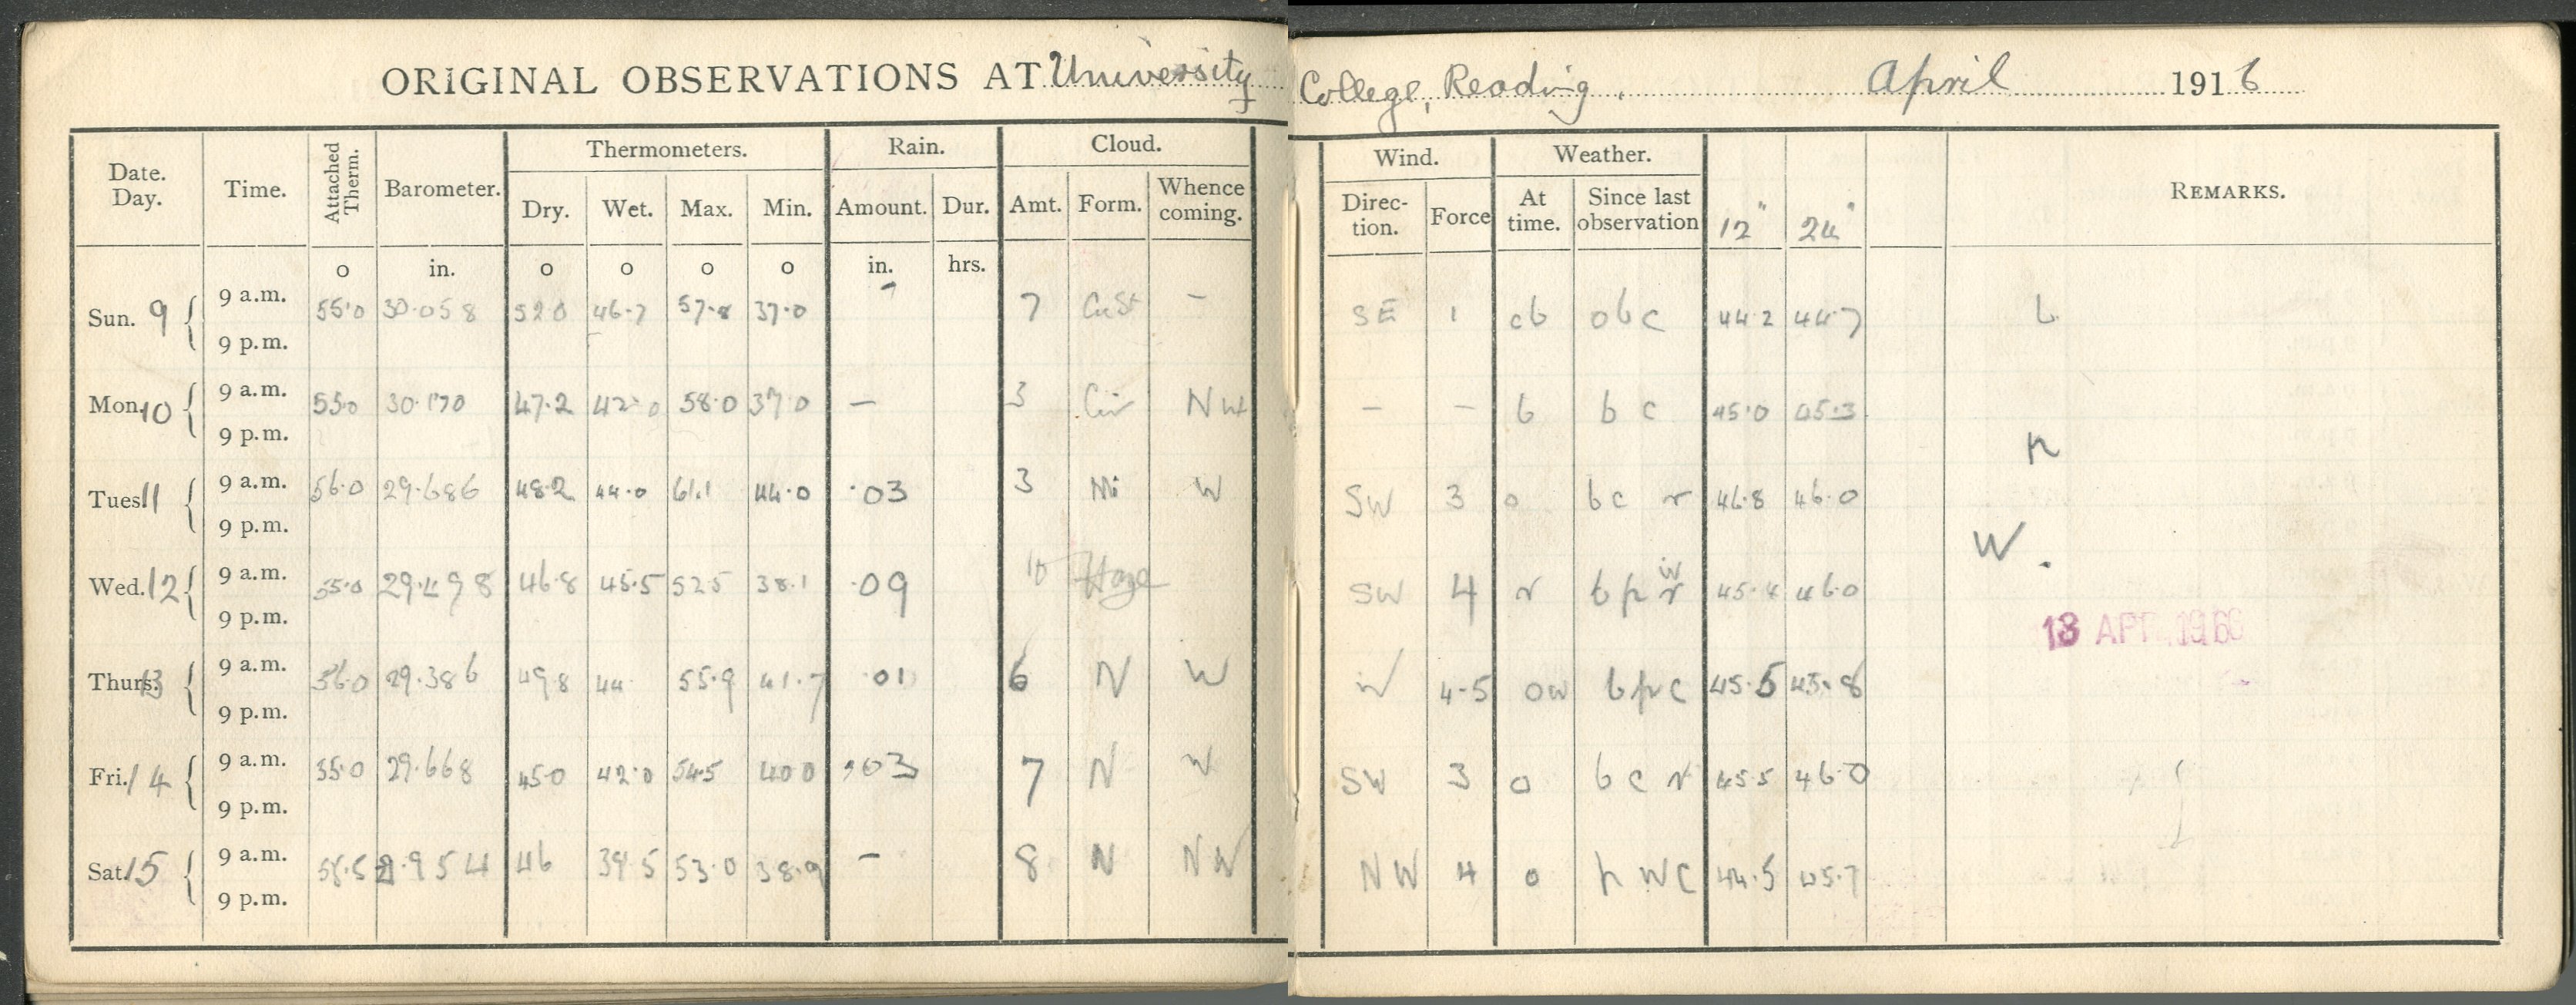 ORIGINAL OBSERVATIONS AT University College, Reading. April 1916
Date. Day. Time. Attached Therm. Barometer. Thermometers. Rain. Cloud. Wind. Weather. REMARKS.
Dry. Wet. Max. Min. Amount. Dur. Amt. Form. Whence coming. Direc-tion. Force At time. Since last observation 12" 24"
o in. o o o o in. hrs.
Sun. 9 9 a.m. 55.0 30.058 52.0 46.7 57.8 37.0 - 7 CuSt - SE 1 cb obc 44.2 44.7 L
9 p.m.
Mon. 10 9 a.m. 55.0 30.170 47.2 42.0 58.0 37.0 — 3 Cir NW - - b b c 45.0 45.3
9 p.m. h
Tues. 11 9 a.m. 56.0 29.686 48.2 44.0 61.1 44.0 .03 3 Ni W SW 3 o bc r 46.8 46.0
9 p.m. W.
Wed. 12 9 a.m. 55.0 29.498 46.8 45.5 52.5 38.1 .09 10 Haze SW 4 r b p r w 45.4 46.0
9 p.m. 13 AP
Thurs. 13 9 a.m. 56.0 29.386 49.8 44 55.9 41.7 .01 6 N W W 4-5 ow b p c 45.5 45.8
9 p.m.
Fri. 14 9 a.m. 55.0 29.668 45.0 42.0 54.5 40.0 .03 7 N W SW 3 o b c r 45.5 46.0
9 p.m.
Sat. 15 9 a.m. 58.5 29.954 46 39.5 53.0 38.9 - 8 N NW NW 4 o h w c 44.5 45.7
9 p.m.